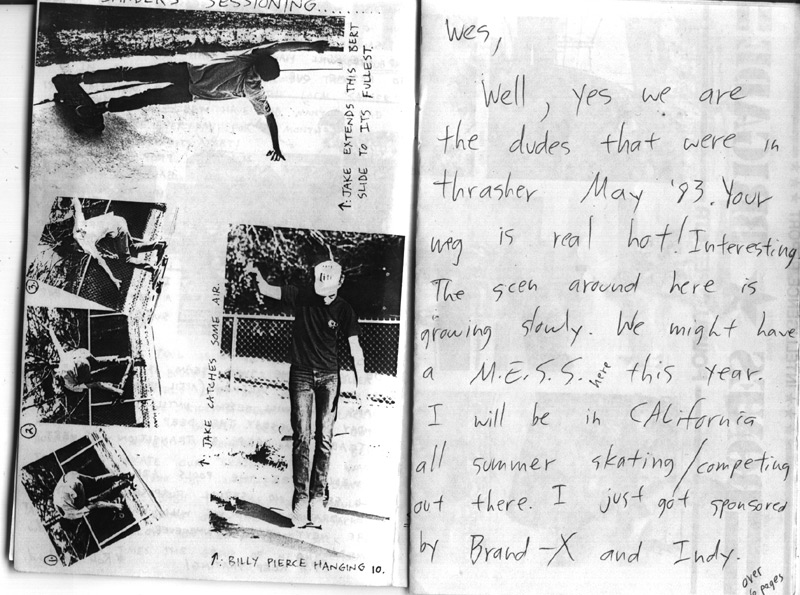 SESSIONING.........
↑: JAKE EXTENDS THIS BERT
SLIDE TO ITS FULLEST.
3
2
1
↑ JAKE CATCHES SOME AIR.
↑: BILLY PIERCE HANGING 10.
Wes,
Well, yes we are
the dudes that were in
thrasher May '83. Your
is real hot! Interesting
The scen around here is
growing slowly. We might have
a M.E.S.S. here this year.
I will be in CALifornia
all summer skating/competing
out there. I just got sponsored
by Brand-X and Indy.
over
pages